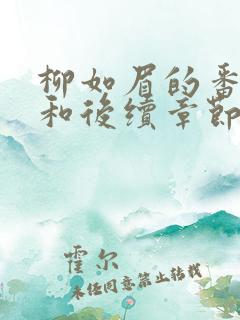 柳如眉的番
和後續章節
霍尔
未经同意禁止转载